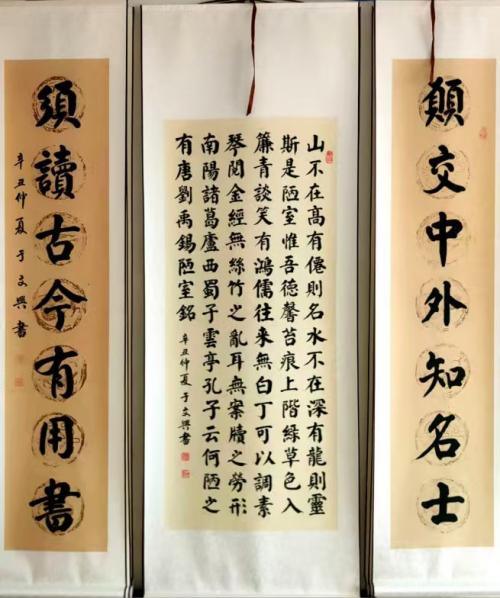 願交中外知名士
山不在高有僊則名水不在深有龍則靈
斯是陋室惟吾德馨苔痕上階綠草色入
簾青談笑有鴻儒往来無白丁可以調素
琴閱金經無絲竹之亂耳無案牘之勞形
南陽諸葛廬西蜀子雲亭孔子云何陋之
有唐劉禹錫陋室銘 辛丑仲夏于文興書
須讀古今有用書
辛丑仲夏于文興書